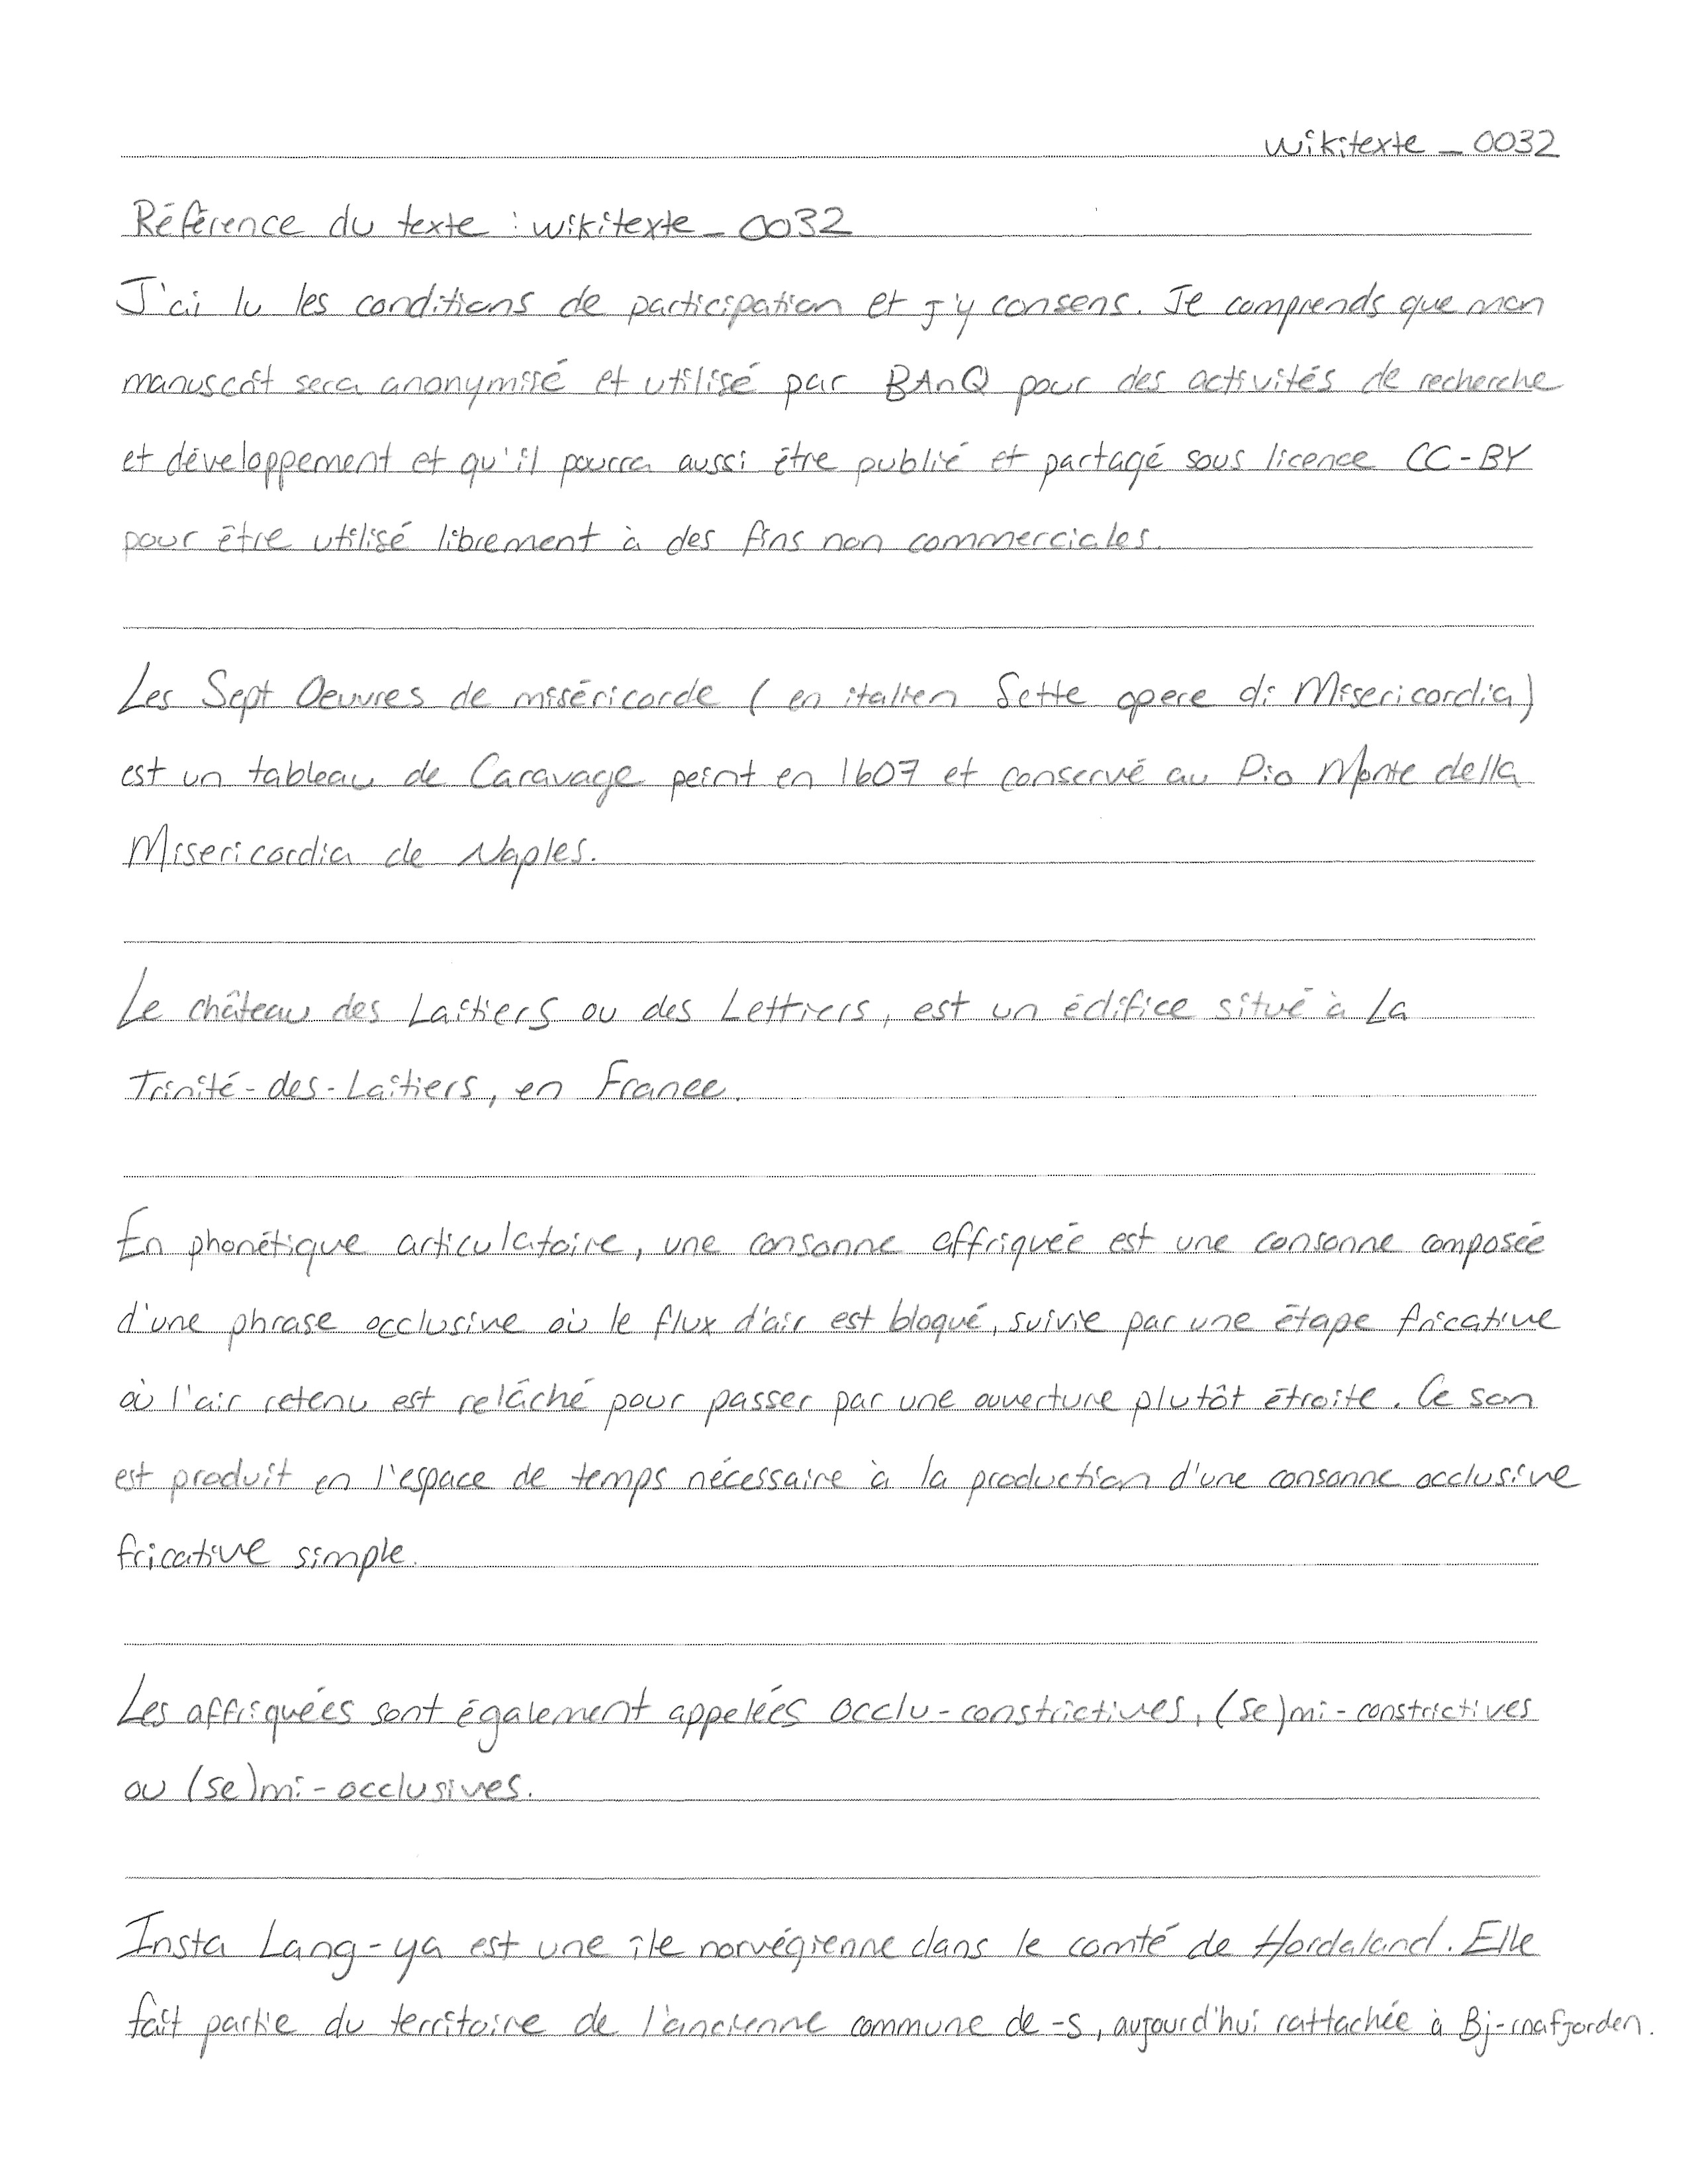 wikitexte_0032
Référence du texte : wikitexte_0032
J'ai lu les conditions de participation et j'y consens. Je comprends que mon
manuscrit sera anonymisé et utilisé par BAnQ pour des activités de recherche
et développement et qu'il pourra aussi être publié et partagé sous licence CC-BY
pour être utilisé librement à des fins non commerciales.
Les Sept Oeuvres de miséricorde (en italien Sette opere di Misericordia)
est un tableau de Caravage peint en 1607 et conservé au Pio Monte della
Misericordia de Naples.
Le château des Laitiers ou des Lettiers, est un édifice situé à La
Trinité-des-Laitiers, en France.
En phonétique articulatoire, une consonne affriquée est une consonne composée
d'une phrase occlusive où le flux d'air est bloqué, suivie par une étape fricative
où l'air retenu est relâché pour passer par une ouverture plutôt étroite. Ce son
est produit en l'espace de temps nécessaire à la production d'une consonne occlusive
fricative simple.
Les affriquées sont également appelées occlu-constrictives, (se)mi-constrictives
ou (se)mi-occlusives.
Insta Lang-ya est une île norvégienne dans le comté de Hordaland. Elle
fait partie du territoire de l'ancienne commune de -s, aujourd'hui rattachée à Bj-rnafjorden.